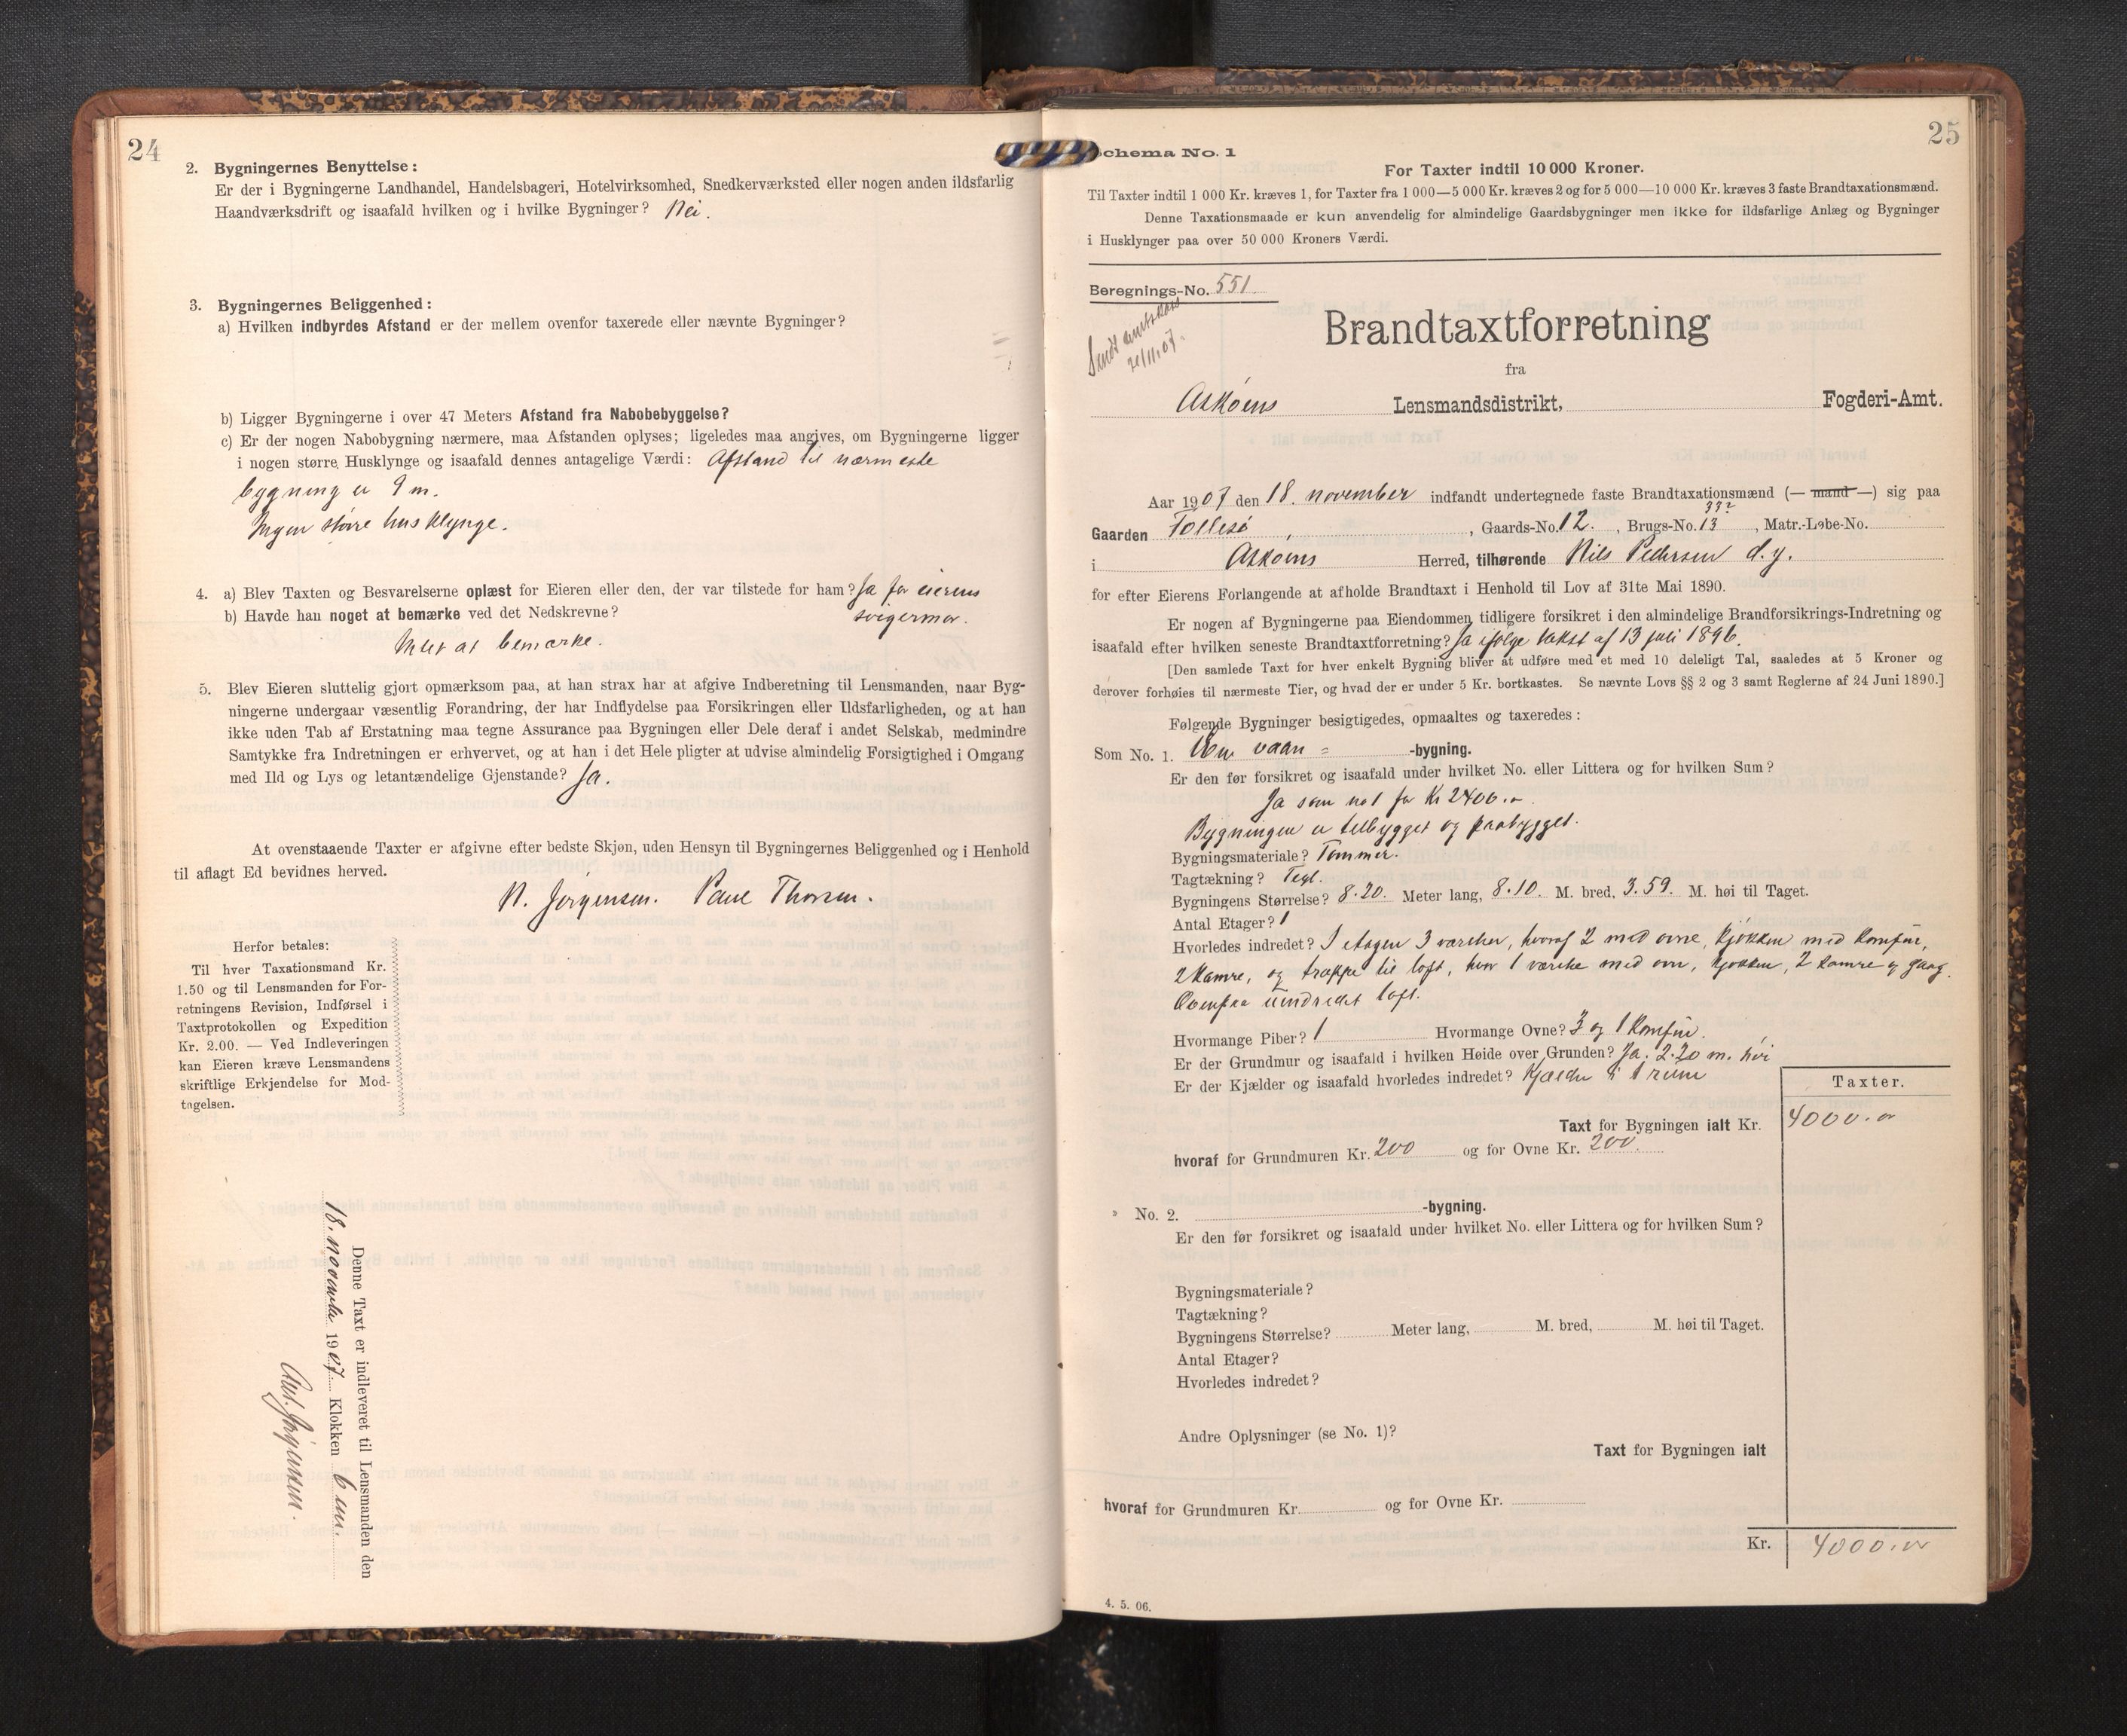 24
2. Bygningernes Benyttelse:
Er der i Bygningerne Landhandel, Handelsbageri, Hotelvirksomhed, Snedkerværksted eller nogen anden ildsfarlig
Haandværksdrift og isaafald hvilken og i hvilke Bygninger? Nei.
3. Bygningernes Beliggenhed:
a) Hvilken indbyrdes Afstand er der mellem ovenfor taxerede eller nævnte Bygninger?
b) Ligger Bygningerne i over 47 Meters Afstand fra Nabobebyggelse?
c) Er der nogen Nabobygning nærmere, maa Afstanden oplyses; ligeledes maa angives, om Bygningerne ligger
i nogen større Husklynge og isaafald dennes antagelige Værdi: Afstand til nærmeste
bygning er 9 m.
Ingen større husklynge.
4. a) Blev Taxten og Besvarelserne oplæst for Eieren eller den, der var tilstede for ham? Ja for eierens
svigermor.
b) Havde han noget at bemærke ved det Nedskrevne?
Intet at bemærke.
5. Blev Eieren sluttelig gjort opmærksom paa, at han strax har at afgive Indberetning til Lensmanden, naar Byg-
ningerne undergaar væsentlig Forandring, der har Indflydelse paa Forsikringen eller Ildsfarligheden, og at han
ikke uden Tab af Erstatning maa tegne Assurance paa Bygningen eller Dele deraf i andet Selskab, medmindre
Samtykke fra Indretningen er erhvervet, og at han i det Hele pligter at udvise almindelig Forsigtighed i Omgang
med Ild og Lys og letantændelige Gjenstande? Ja.
At ovenstaaende Taxter er afgivne efter bedste Skjøn, uden Hensyn til Bygningernes Beliggenhed og i Henhold
til aflagt Ed bevidnes herved.
N. Jørgensen. Paul Thorsen.
Herfor betales:
Til hver Taxationsmand Kr.
1.50 og til Lensmanden for For-
retningens Revision, Indførsel i
Taxtprotokollen og Expedition
Kr. 2.00. — Ved Indleveringen
kan Eieren kræve Lensmandens
skriftlige Erkjendelse for Mod-
tagelsen.
Denne Taxt er indleveret til Lensmanden den
18. november 1907 Klokken 6 em.
Jørgensen.
25
Schema No. 1
For Taxter indtil 10 000 Kroner.
Til Taxter indtil 1 000 Kr. kræves 1, for Taxter fra 1 000—5 000 Kr. kræves 2 og for 5 000—10 000 Kr. kræves 3 faste Brandtaxationsmænd.
Denne Taxationsmaade er kun anvendelig for almindelige Gaardsbygninger men ikke for ildsfarlige Anlæg og Bygninger
i Husklynger paa over 50 000 Kroners Værdi.
Beregnings-No. 551.
Sendt
21/11.07.
Brandtaxtforretning
fra
Askøens Lensmandsdistrikt, Fogderi-Amt.
Aar 1907 den 18. november indfandt undertegnede faste Brandtaxationsmænd (— mand —) sig paa
Gaarden Follesø, Gaards-No. 12., Brugs-No. 13 33?, Matr.-Løbe-No.
i Askøens Herred, tilhørende Nils Pedersen d.y.
for efter Eierens Forlangende at afholde Brandtaxt i Henhold til Lov af 31te Mai 1890.
Er nogen af Bygningerne paa Eiendommen tidligere forsikret i den almindelige Brandforsikrings-Indretning og
isaafald efter hvilken seneste Brandtaxtforretning? Ja ifølge takst af 13 juli 1896.
[Den samlede Taxt for hver enkelt Bygning bliver at udføre med et med 10 deleligt Tal, saaledes at 5 Kroner og
derover forhøies til nærmeste Tier, og hvad der er under 5 Kr. bortkastes. Se nævnte Lovs §§ 2 og 3 samt Reglerne af 24 Juni 1890.]
Følgende Bygninger besigtigedes, opmaaltes og taxeredes:
Som No. 1. En vaan = -bygning.
Er den før forsikret og isaafald under hvilket No. eller Littera og for hvilken Sum?
Ja som no 1 for Kr 2400.
Bygningen er tilbygget og paabygget.
Bygningsmateriale? Tømmer.
Tagtækning? Tegl.
Bygningens Størrelse? 8.20. Meter lang, 8.10. M. bred, 3.59. M. høi til Taget.
Antal Etager? 1
Hvorledes indredet? I etagen 3 værelser, hvoraf 2 med ovne, kjøkken med komfür,
2 kamre, og trappe til loft, hvor 1 værelse med ovn, kjøkken, 2 kamre og gang.
Ovenpaa uindredet loft.
Hvormange Piber? 1 Hvormange Ovne? 3 og 1 komfür.
Er der Grundmur og isaafald i hvilken Høide over Grunden? Ja. 2.20 m. høi
Er der Kjælder og isaafald hvorledes indredet? Kjælder i 1 rum
Taxter.
Taxt for Bygningen ialt Kr. 4000.
hvoraf for Grundmuren Kr. 200 og for Ovne Kr. 200.
» No. 2. -bygning.
Er den før forsikret og isaafald under hvilket No. eller Littera og for hvilken Sum?
Bygningsmateriale?
Tagtækning?
Bygningens Størrelse? Meter lang, M. bred, M. høi til Taget.
Antal Etager?
Hvorledes indredet?
Andre Oplysninger (se No. 1)?
Taxt for Bygningen ialt
hvoraf for Grundmuren Kr. og for Ovne Kr.
Kr. 4000.
4. 5. 06.